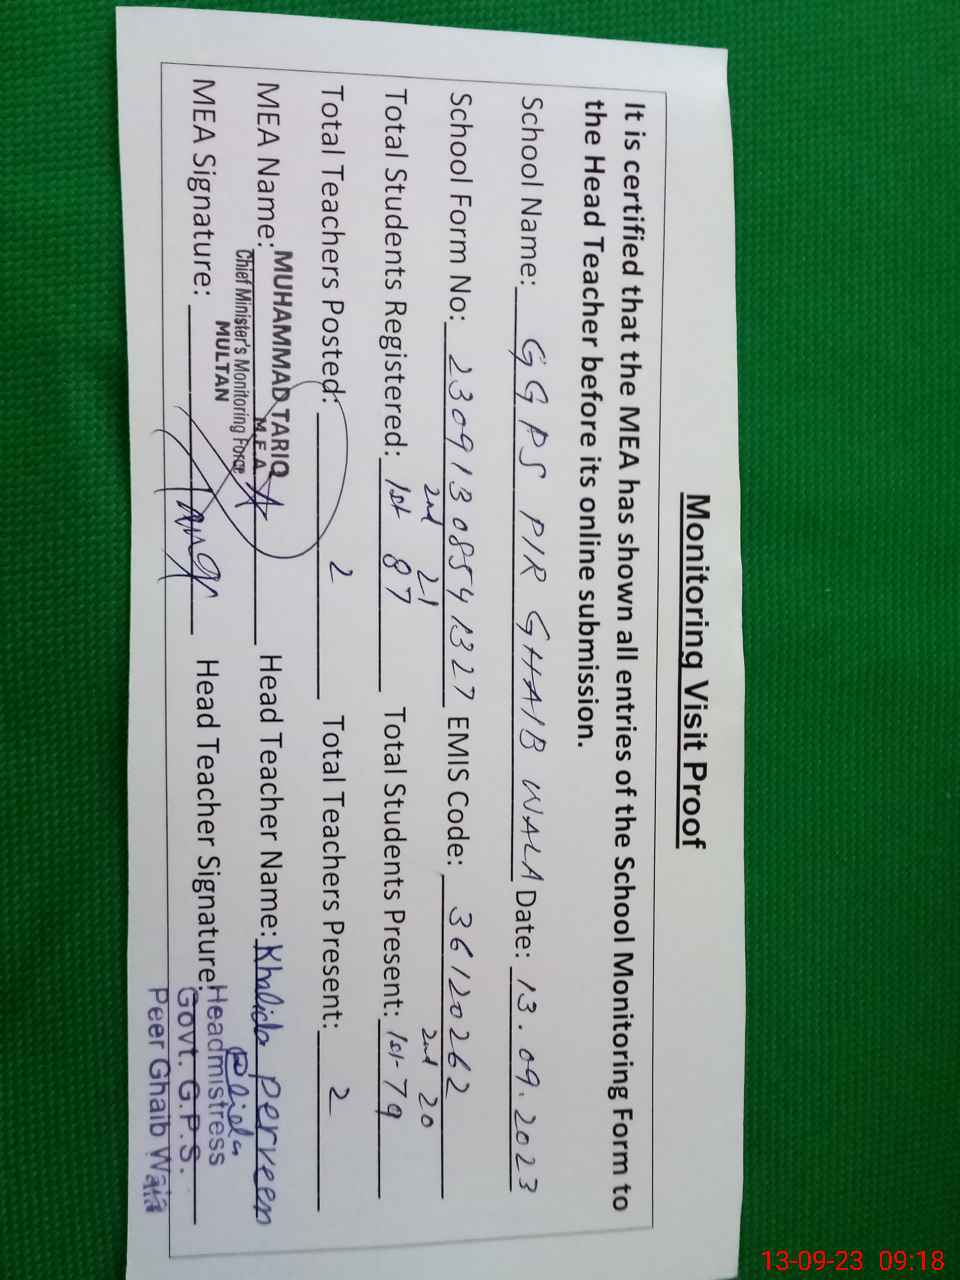 Monitoring Visit Proof
It is certified that the MEA has shown all entries of the School Monitoring Form to
the Head Teacher before its online submission.
School Name: GGPS PIR GHAIB WALA Date: 13.09.2023
School Form No: 23091308541327 EMIS Code: 36120262
2nd 21 2nd 20
Total Students Registered: 1st 87 Total Students Present: 1st- 79
Total Teachers Posted: 2 Total Teachers Present: 2
MUHAMMAD TARIQ
M.E.A
MEA Name: Head Teacher Name: Khalida Perveen
Chief Minister's Monitoring Force
MULTAN
MEA Signature: Head Teacher Signature:
Headmistress
Govt. G.P.S.
Peer Ghaib Wala
13-09-23 09:18